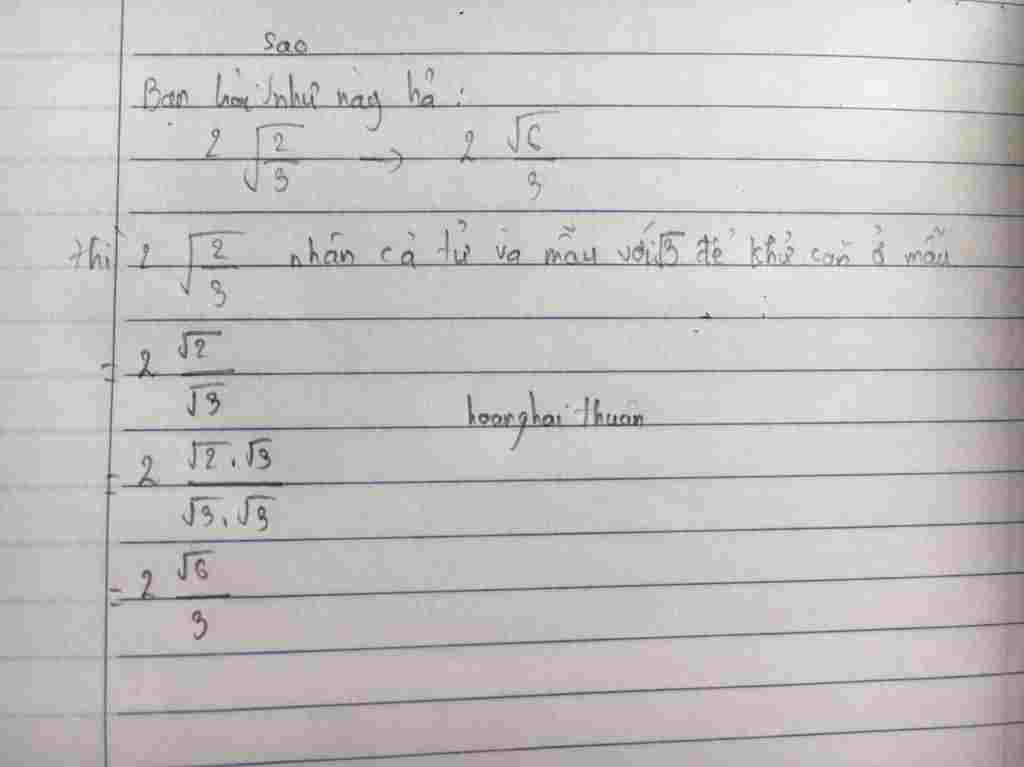 sao
Bạn hỏi như này hả :
2 √(2/3) → 2 √6/3
thì 2 √(2/3) nhân cả tử và mẫu với √3 để khử căn ở mẫu
= 2 √2/√3
hoanghai thuan
= 2 √2.√3/√3.√3
= 2 √6/3